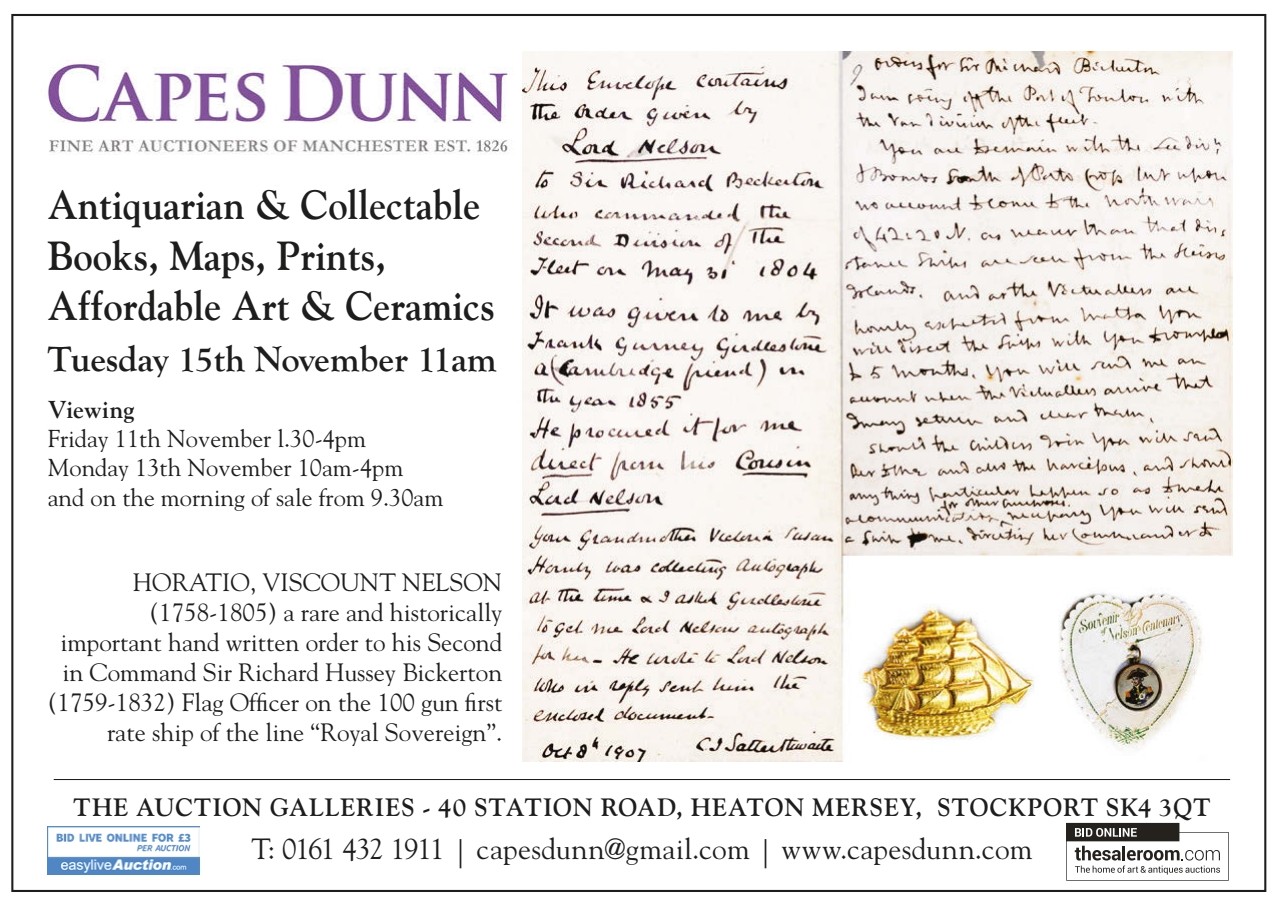 CAPES DUNN
FINE ART AUCTIONEERS OF MANCHESTER EST. 1826
Antiquarian & Collectable
Books, Maps, Prints,
Affordable Art & Ceramics
Tuesday 15th November 11am
Viewing
Friday 11th November l.30-4pm
Monday 13th November 10am-4pm
and on the morning of sale from 9.30am
HORATIO, VISCOUNT NELSON
(1758-1805) a rare and historically
important hand written order to his Second
in Command Sir Richard Hussey Bickerton
(1759-1832) Flag Officer on the 100 gun first
rate ship of the line “Royal Sovereign”.
This Envelope contains
the order given by
Lord Nelson
to Sir Richard Beckerton
who commanded the
Second Division of the
Fleet on May 31 1804
It was given to me by
Frank Gurney Girdlestone
a (Cambridge friend) in
the year 1855
He procured it for me
direct from his Cousin
Lord Nelson
Your Grandmother Victoria Susan
Hornby was collecting Autographs
at the time & I asked Girdlestone
to get me Lord Nelsons autograph
for her - He wrote to Lord Nelson
who in reply sent him the
enclosed document-
Oct 8th 1907 C.J Satterthwaite
orders for Sir Richard Bickerton
I am going off the Port of Toulon with
the Van division of the fleet.
You are to remain with the Lee div
& Bombs South of Porto but upon
no account to come to the northward
of 42:20 N. as nearer than that dis
tance Ships are seen from the
Islands. and as the Victuallers are
hourly expected from Malta You
will direct the Ships with You to complete
to 5 Months. You will send me an
account when the Victuallers arrive that
I may return and clear them.
should the Childers Join You will send
her to me and also the Narcissus, and should
any thing particular happen so as to make
a communication necessary You will send
for other
a Ship to me, directing her Commander to
Souvenir
of Nelson Centenary
THE AUCTION GALLERIES - 40 STATION ROAD, HEATON MERSEY, STOCKPORT SK4 3QT
BID LIVE ONLINE FOR £3
PER AUCTION
easyliveAuction.com
T: 0161 432 1911 | capesdunn@gmail.com | www.capesdunn.com
BID ONLINE
thesaleroom.com
The home of art & antiques auctions